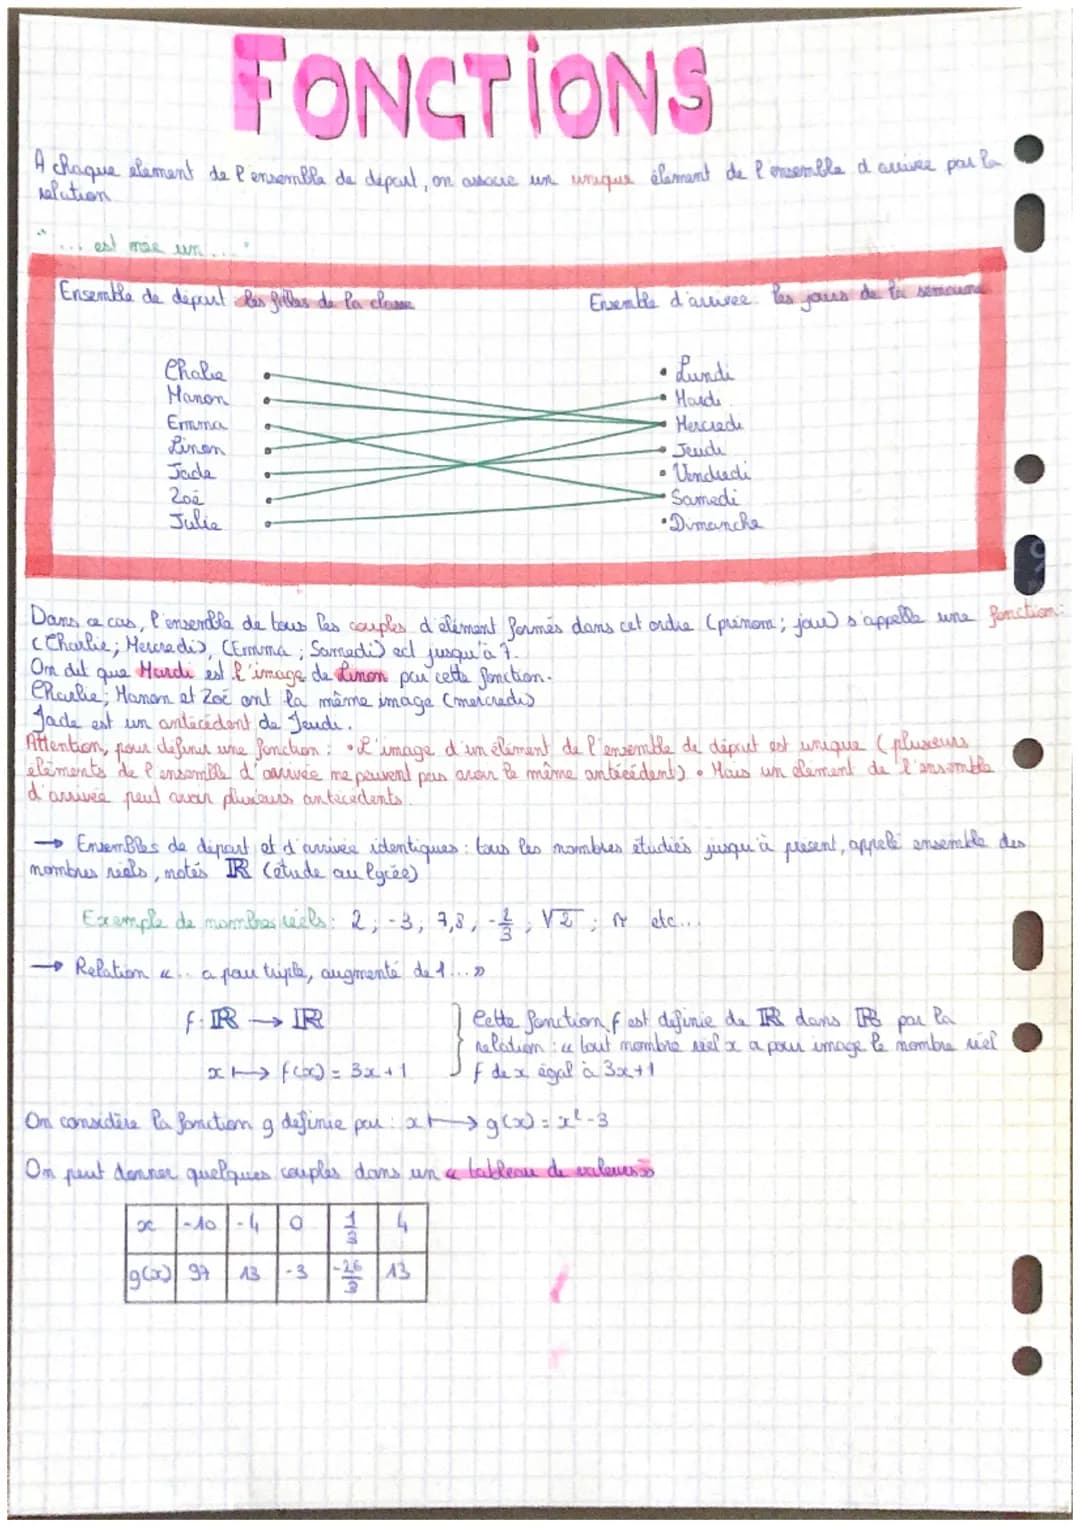 FONCTIONS
A chaque element de l'ensemble de départ, on associe un unique élément de l'ensemble d'arrivée par la
relation
"... est née un ..."
Ensemble de départ : les filles de la classe
Ensemble d'arrivée : les jours de la semaine
Chalie
• Lundi
Manon
• Mardi
Emma
• Mercredi
Linon
• Jeudi
Jade
• Vendredi
Zoé
• Samedi
Julie
• Dimanche
Dans ce cas, l'ensemble de tous les couples d'élément formés dans cet ordre (prénom ; jour) s'appelle une fonction :
(Charlie ; Mercredi), (Emma ; Samedi) ect jusqu'à 7.
On dit que Mardi est l'image de Linon par cette fonction.
Charlie, Manon et Zoé ont la même image (mercredi)
Jade est un antécédent de Jeudi.
Attention, pour définir une fonction : • L'image d'un élément de l'ensemble de départ est unique (plusieurs
éléments de l'ensemble d'arrivée ne peuvent pas avoir le même antécédent) • Mais un élément de l'ensemble
d'arrivée peut avoir plusieurs antécédents.
→ Ensembles de départ et d'arrivée identiques : tous les nombres étudiés jusqu'à présent, appelé ensemble des
nombres réels, notés ℝ (étude au lycée)
Exemple de nombres réels : 2 ; -3 ; 7,8 ; -2/3 ; √2 ; π etc...
→ Relation «... a pour triple, augmenté de 1 ...»
f : ℝ → ℝ
x ↦ f(x) = 3x + 1
Cette fonction f est définie de ℝ dans ℝ par la
relation : « tout nombre réel x a pour image le nombre réel
f de x égal à 3x+1
On considère la fonction g définie par : x ↦ g(x) = x² - 3
On peut donner quelques couples dans un « tableau de valeurs »
x -10 -4 0 1/3 4
g(x) 97 13 -3 -26/9 13